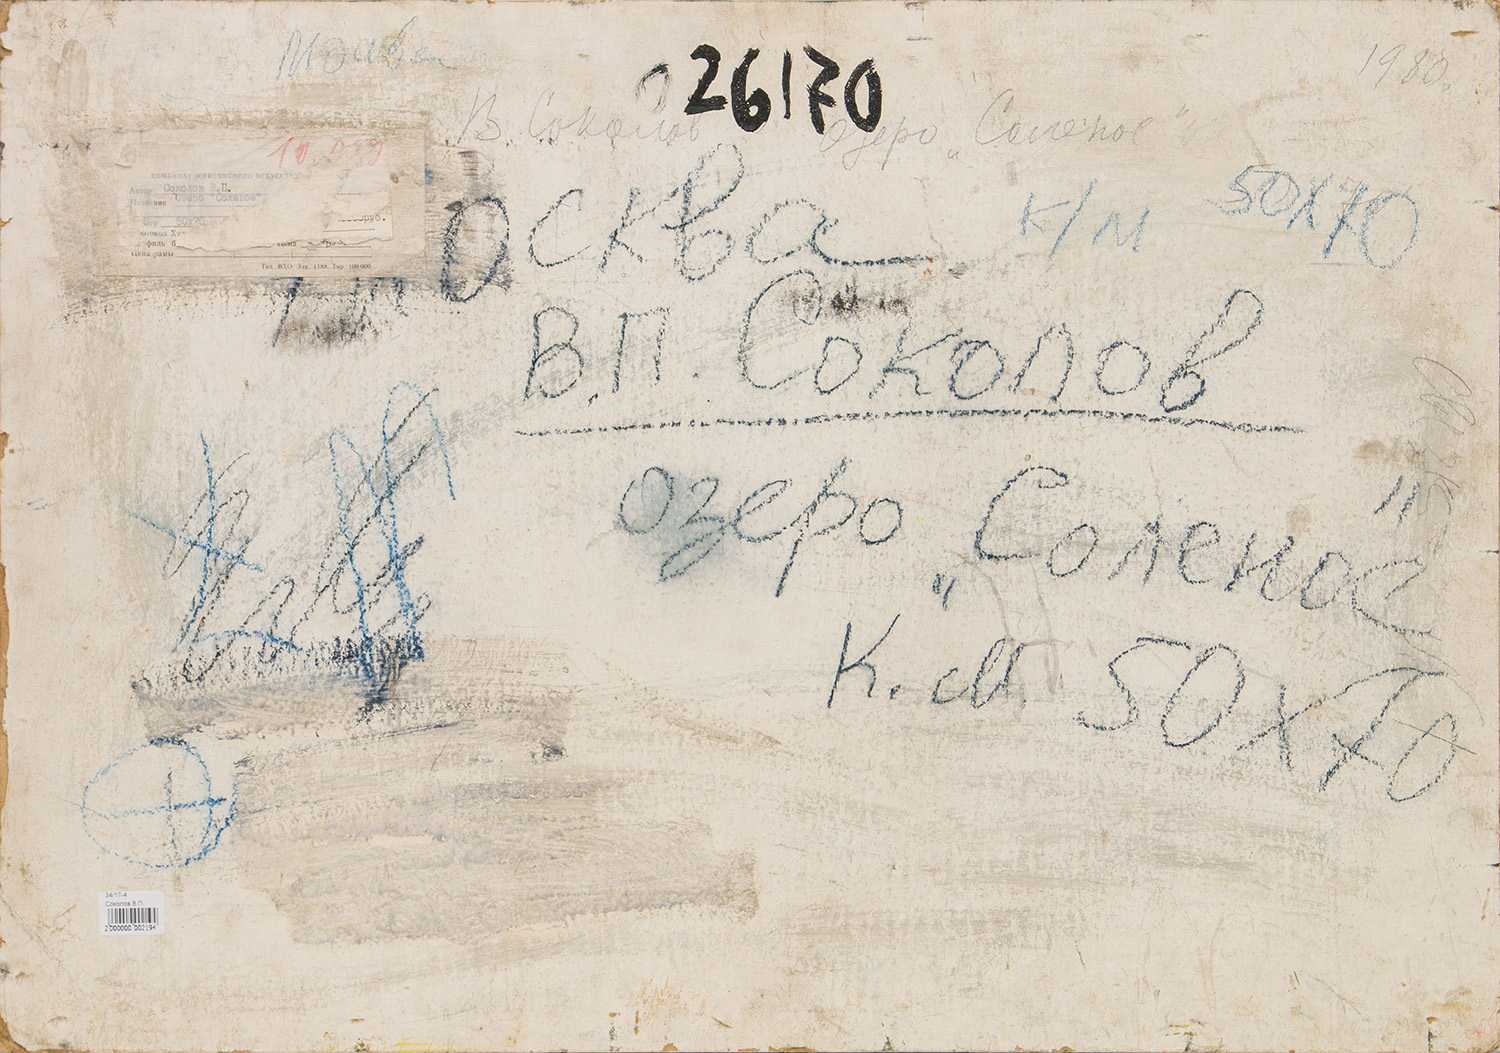 Москва
26170
1980.
В. Соколов озеро „Соленое"
КОМБИНАТ ЖИВОПИСНОГО ИСКУССТВА
Автор Соколов В.П.
Название Озеро "Соленое"
50х70
руб.
Цена рамы
Тип. ВХО. Зак. 1188. Тир. 100 000
Москва
к/м 50х70
В.П. Соколов
озеро „Соленое"
К. м. 50х70
34/17-4
Соколов В.П.
2 000000 002194